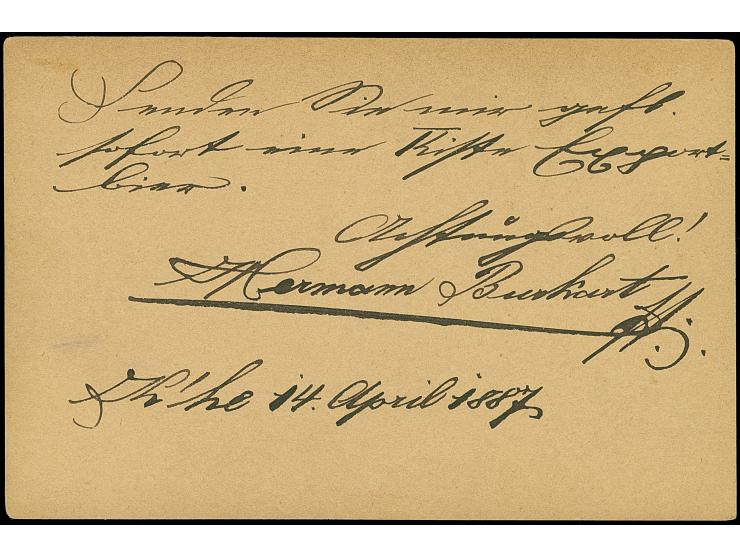 Senden Sie mir gefl.
sofort eine Kiste Export=
bier.
Achtungsvoll!
Hermann Burkart
K'he 14. April 1887